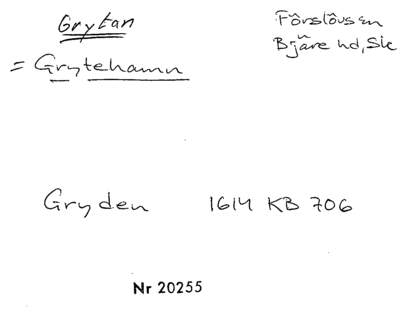 Grytan
Förslövs sn
Bjäre hd, Sk
= Grytehamn
Gryden 1614 KB 706
Nr 20255